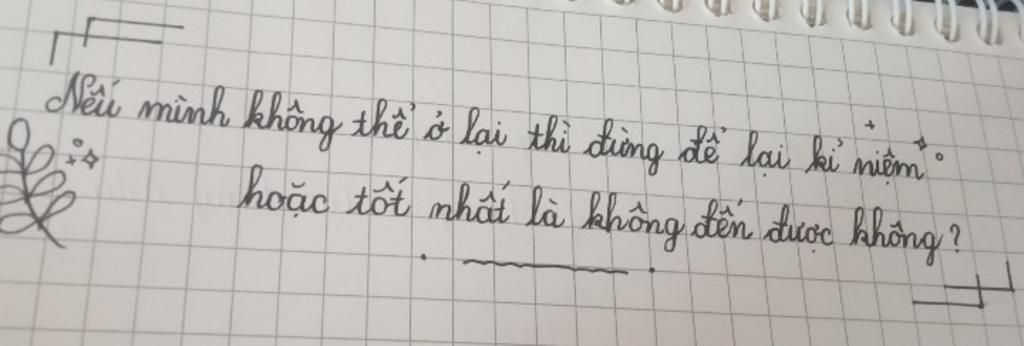 Nếu mình không thể ở lại thì đừng để lại kỉ niệm
hoặc tốt nhất là không đến được không?